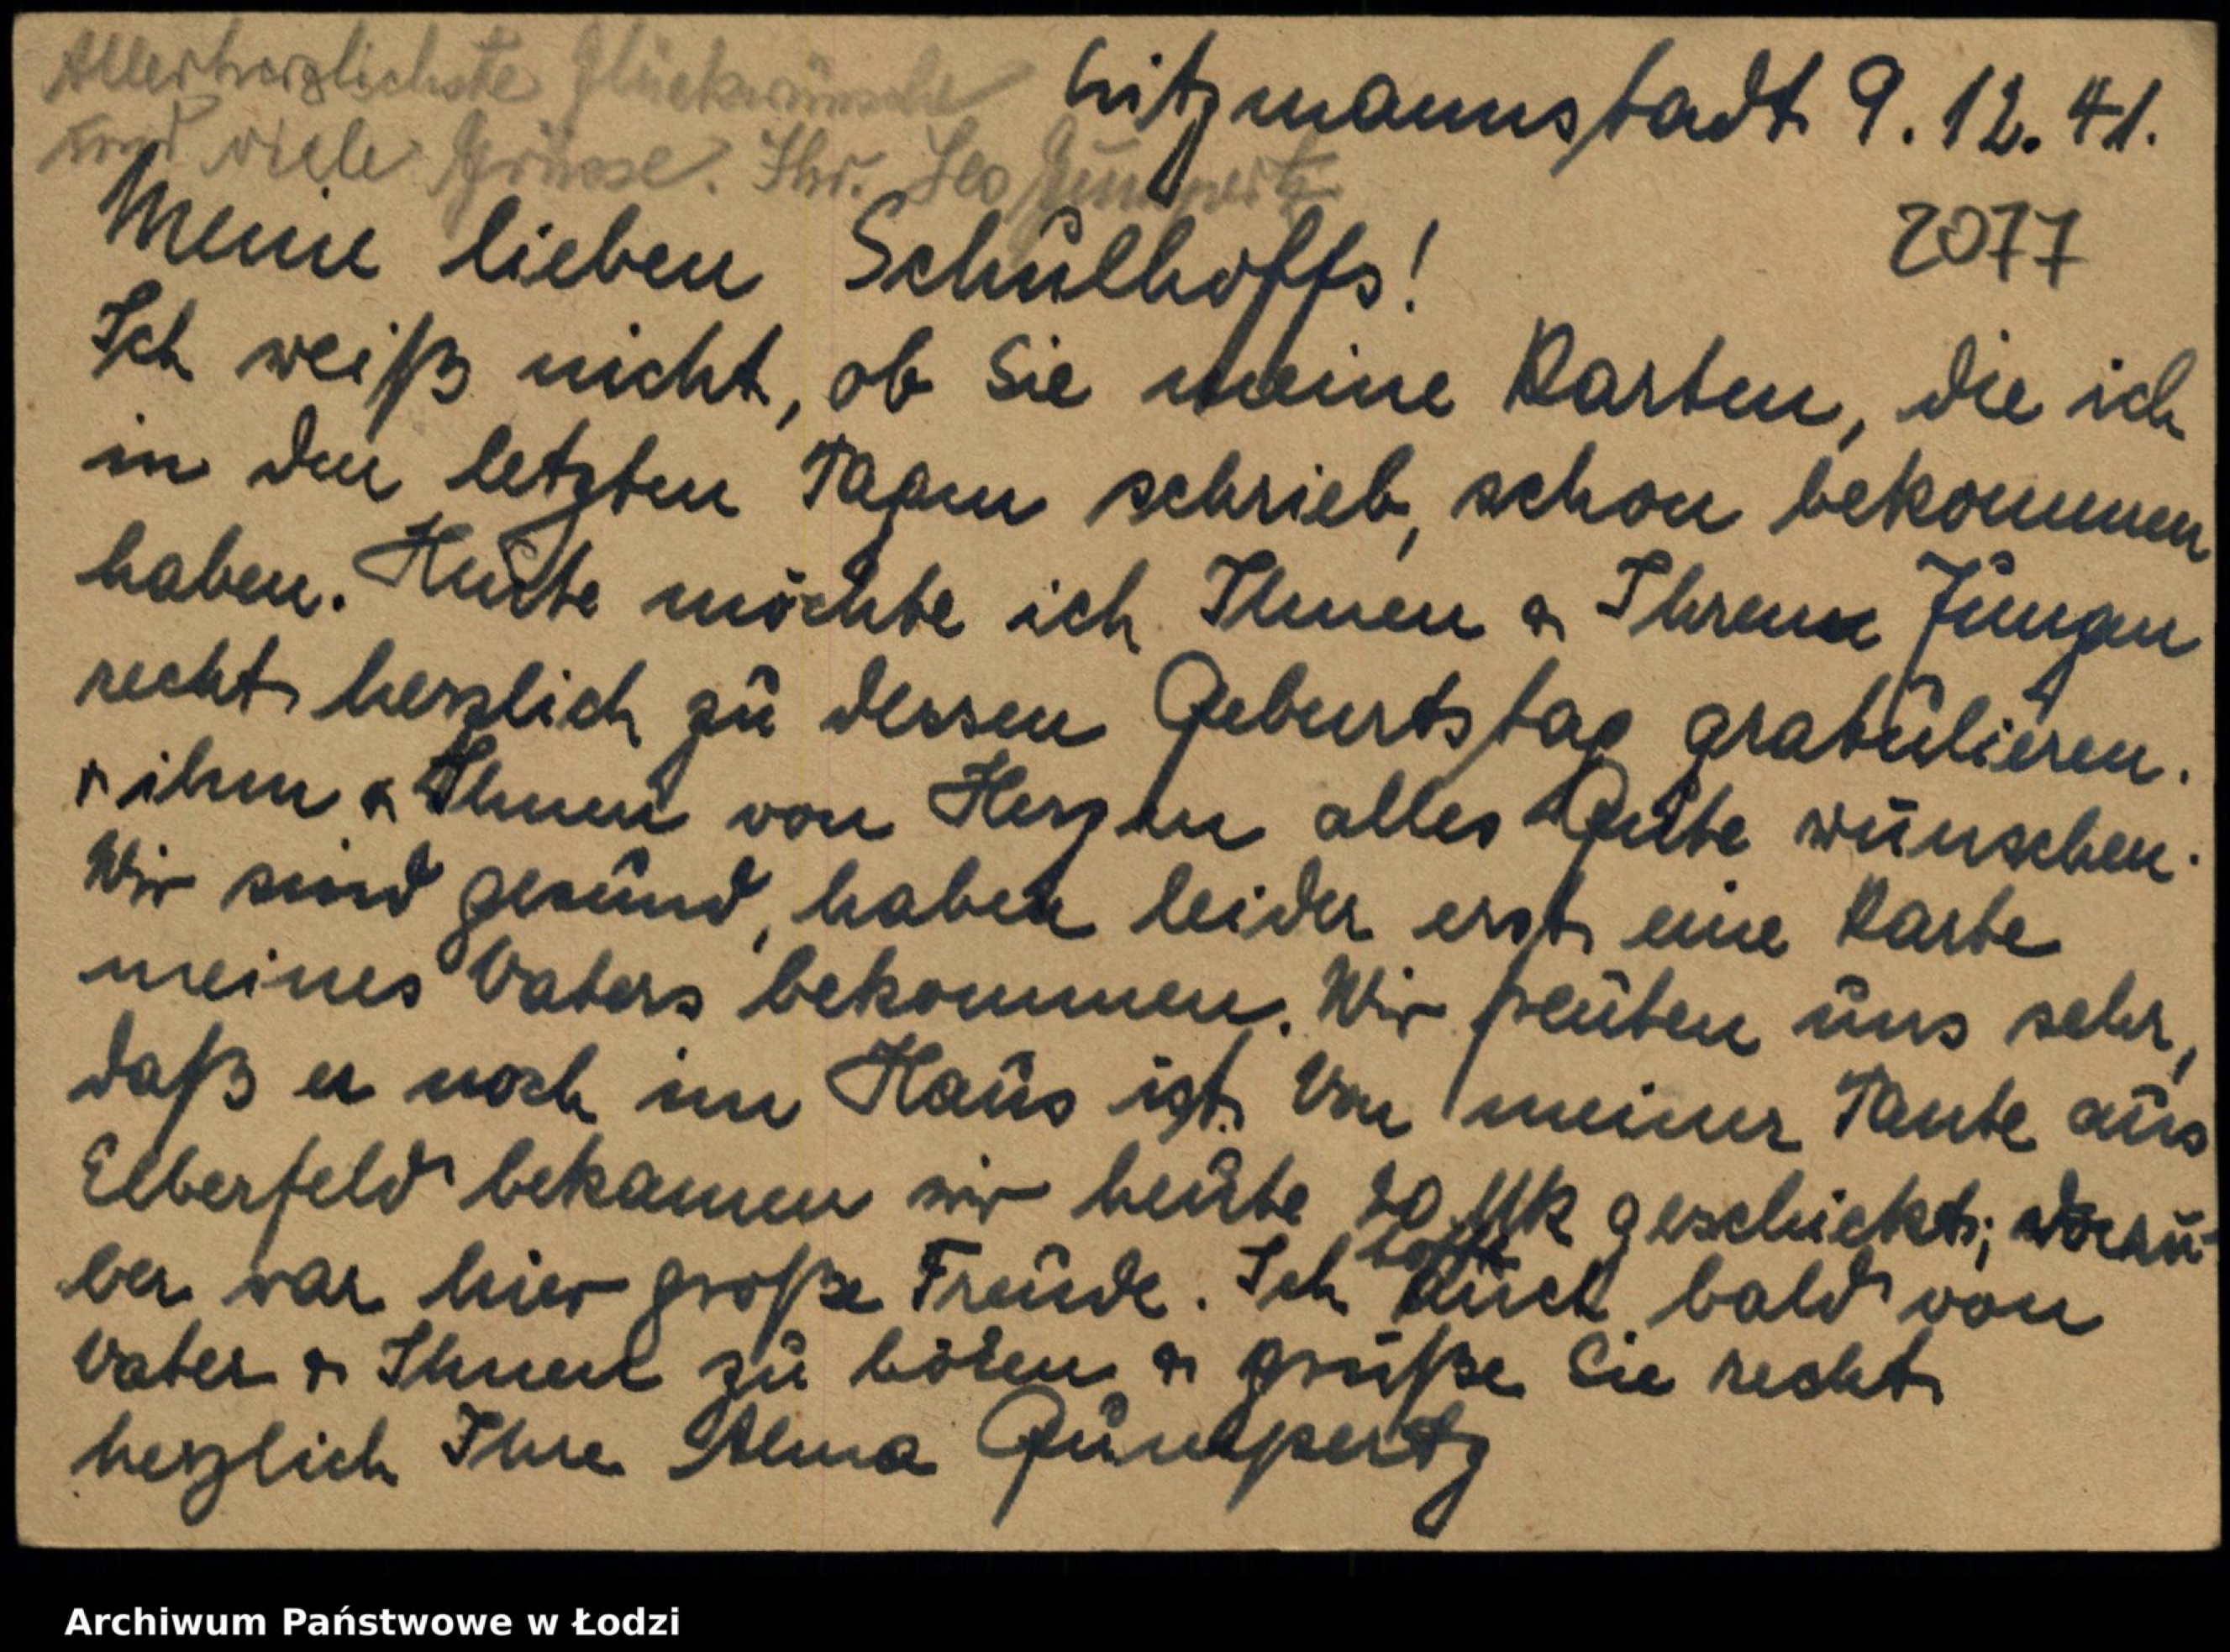 Allerherzlichste Glückwünsche
und viele Grüsse. Ihr Leo Gumpertz
Litzmannstadt 9. 12. 41.
2077
Meine lieben Schulhoffs!
Ich weiß nicht, ob Sie meine Karten, die ich
in den letzten Tagen schrieb, schon bekommen
haben. Heute möchte ich Ihnen & Ihrem Jungen
recht herzlich zu dessen Geburtstag gratulieren.
& ihm & Ihnen von Herzen alles Gute wünschen.
Wir sind gesund, haben leider erst eine Karte
meines Vaters bekommen. Wir freuten uns sehr,
daß er noch im Haus ist. Von meiner Tante aus
Elberfeld bekamen wir heute 20 Mk geschickt; darü-
ber war hier große Freude. Ich hoffe auch bald von
Vater & Ihnen zu hören & grüße Sie recht
herzlich Ihre Alma Gumpertz
Archiwum Państwowe w Łodzi